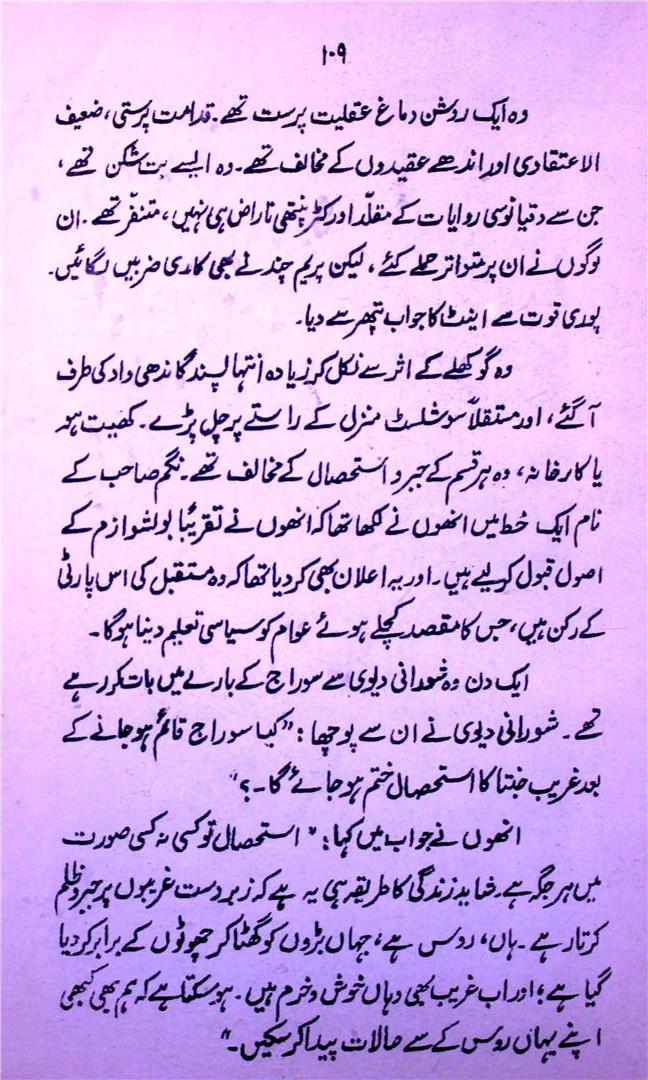 ۱۰۹
وہ ایک روشن دماغ عقلیت پرست تھے۔ قدامت پرستی، ضعیف
الاعتقادی اور اندھے عقیدوں کے مخالف تھے۔ وہ ایسے بت شکن تھے،
جن سے دقیانوسی روایات کے مقلّد اور کٹر پنتھی ناراض ہی نہیں، متنفّر تھے۔ ان
لوگوں نے ان پر متواتر حملے کئے، لیکن پریم چند نے بھی کاری ضربیں لگائیں۔
پوری قوت سے اینٹ کا جواب پتھر سے دیا۔
وہ گوکھلے کے اثر سے نکل کر زیادہ انتہا پسند گاندھی واد کی طرف
آ گئے، اور مستقلاً سوشلسٹ منزل کے راستے پر چل پڑے۔ کھیت ہو
یا کارخانہ، وہ ہر قسم کے جبر و استحصال کے مخالف تھے۔ نگم صاحب کے
نام ایک خط میں انھوں نے لکھا تھا کہ انھوں نے تقریبًا بولشوازم کے
اصول قبول کر لیے ہیں۔ اور یہ اعلان بھی کر دیا تھا کہ وہ مستقبل کی اس پارٹی
کے رکن ہیں، جس کا مقصد کچلے ہوئے عوام کو سیاسی تعلیم دینا ہوگا۔
ایک دن وہ شورانی دیوی سے سوراج کے بارے میں بات کر رہے
تھے۔ شورانی دیوی نے ان سے پوچھا: "کیا سوراج قائم ہو جانے کے
بعد غریب جنتا کا استحصال ختم ہو جائے گا۔؟"
انھوں نے جواب میں کہا: "استحصال تو کسی نہ کسی صورت
میں ہر جگہ ہے۔ شاید زندگی کا طریقہ ہی یہ ہے کہ زبردست غریبوں پر جبر و ظلم
کرتا رہے۔ ہاں، روس ہے، جہاں بڑوں کو گھٹا کر چھوٹوں کے برابر کر دیا
گیا ہے؛ اور اب غریب بھی وہاں خوش و خرم ہیں۔ ہو سکتا ہے کہ ہم بھی کبھی
اپنے یہاں روس کے سے حالات پیدا کر سکیں۔"